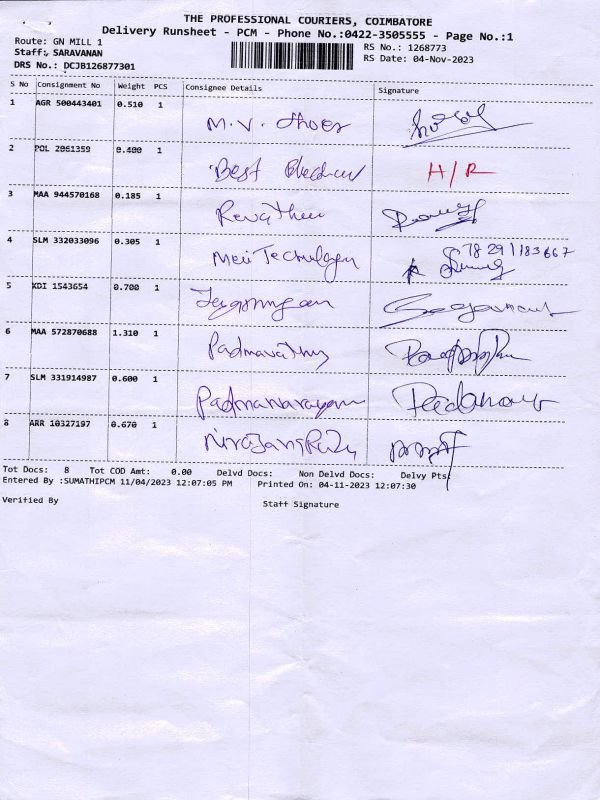 THE PROFESSIONAL COURIERS, COIMBATORE
Delivery Runsheet - PCM - Phone No.:0422-3505555 - Page No.:1
Route: GN MILL 1
RS No.: 1268773
Staff: SARAVANAN
RS Date: 04-Nov-2023
DRS No.: DCJB126877301
S No Consignment No Weight PCS Consignee Details Signature
1 AGR 500443401 0.510 1 M.V. Shoes
2 POL 2061359 0.400 1 Best H/R
3 MAA 944570168 0.185 1 Revathee
4 SLM 332033096 0.305 1 78291183667
5 KDI 1543654 0.700 1
6 MAA 572870688 1.310 1 Padmavathy
7 SLM 331914987 0.600 1 Padmanarayanan
8 ARR 10327197 0.670 1
Tot Docs: 8 Tot COD Amt: 0.00 Delvd Docs: Non Delvd Docs: Delvy Pts:
Entered By :SUMATHIPCM 11/04/2023 12:07:05 PM Printed On: 04-11-2023 12:07:30
Verified By Staff Signature